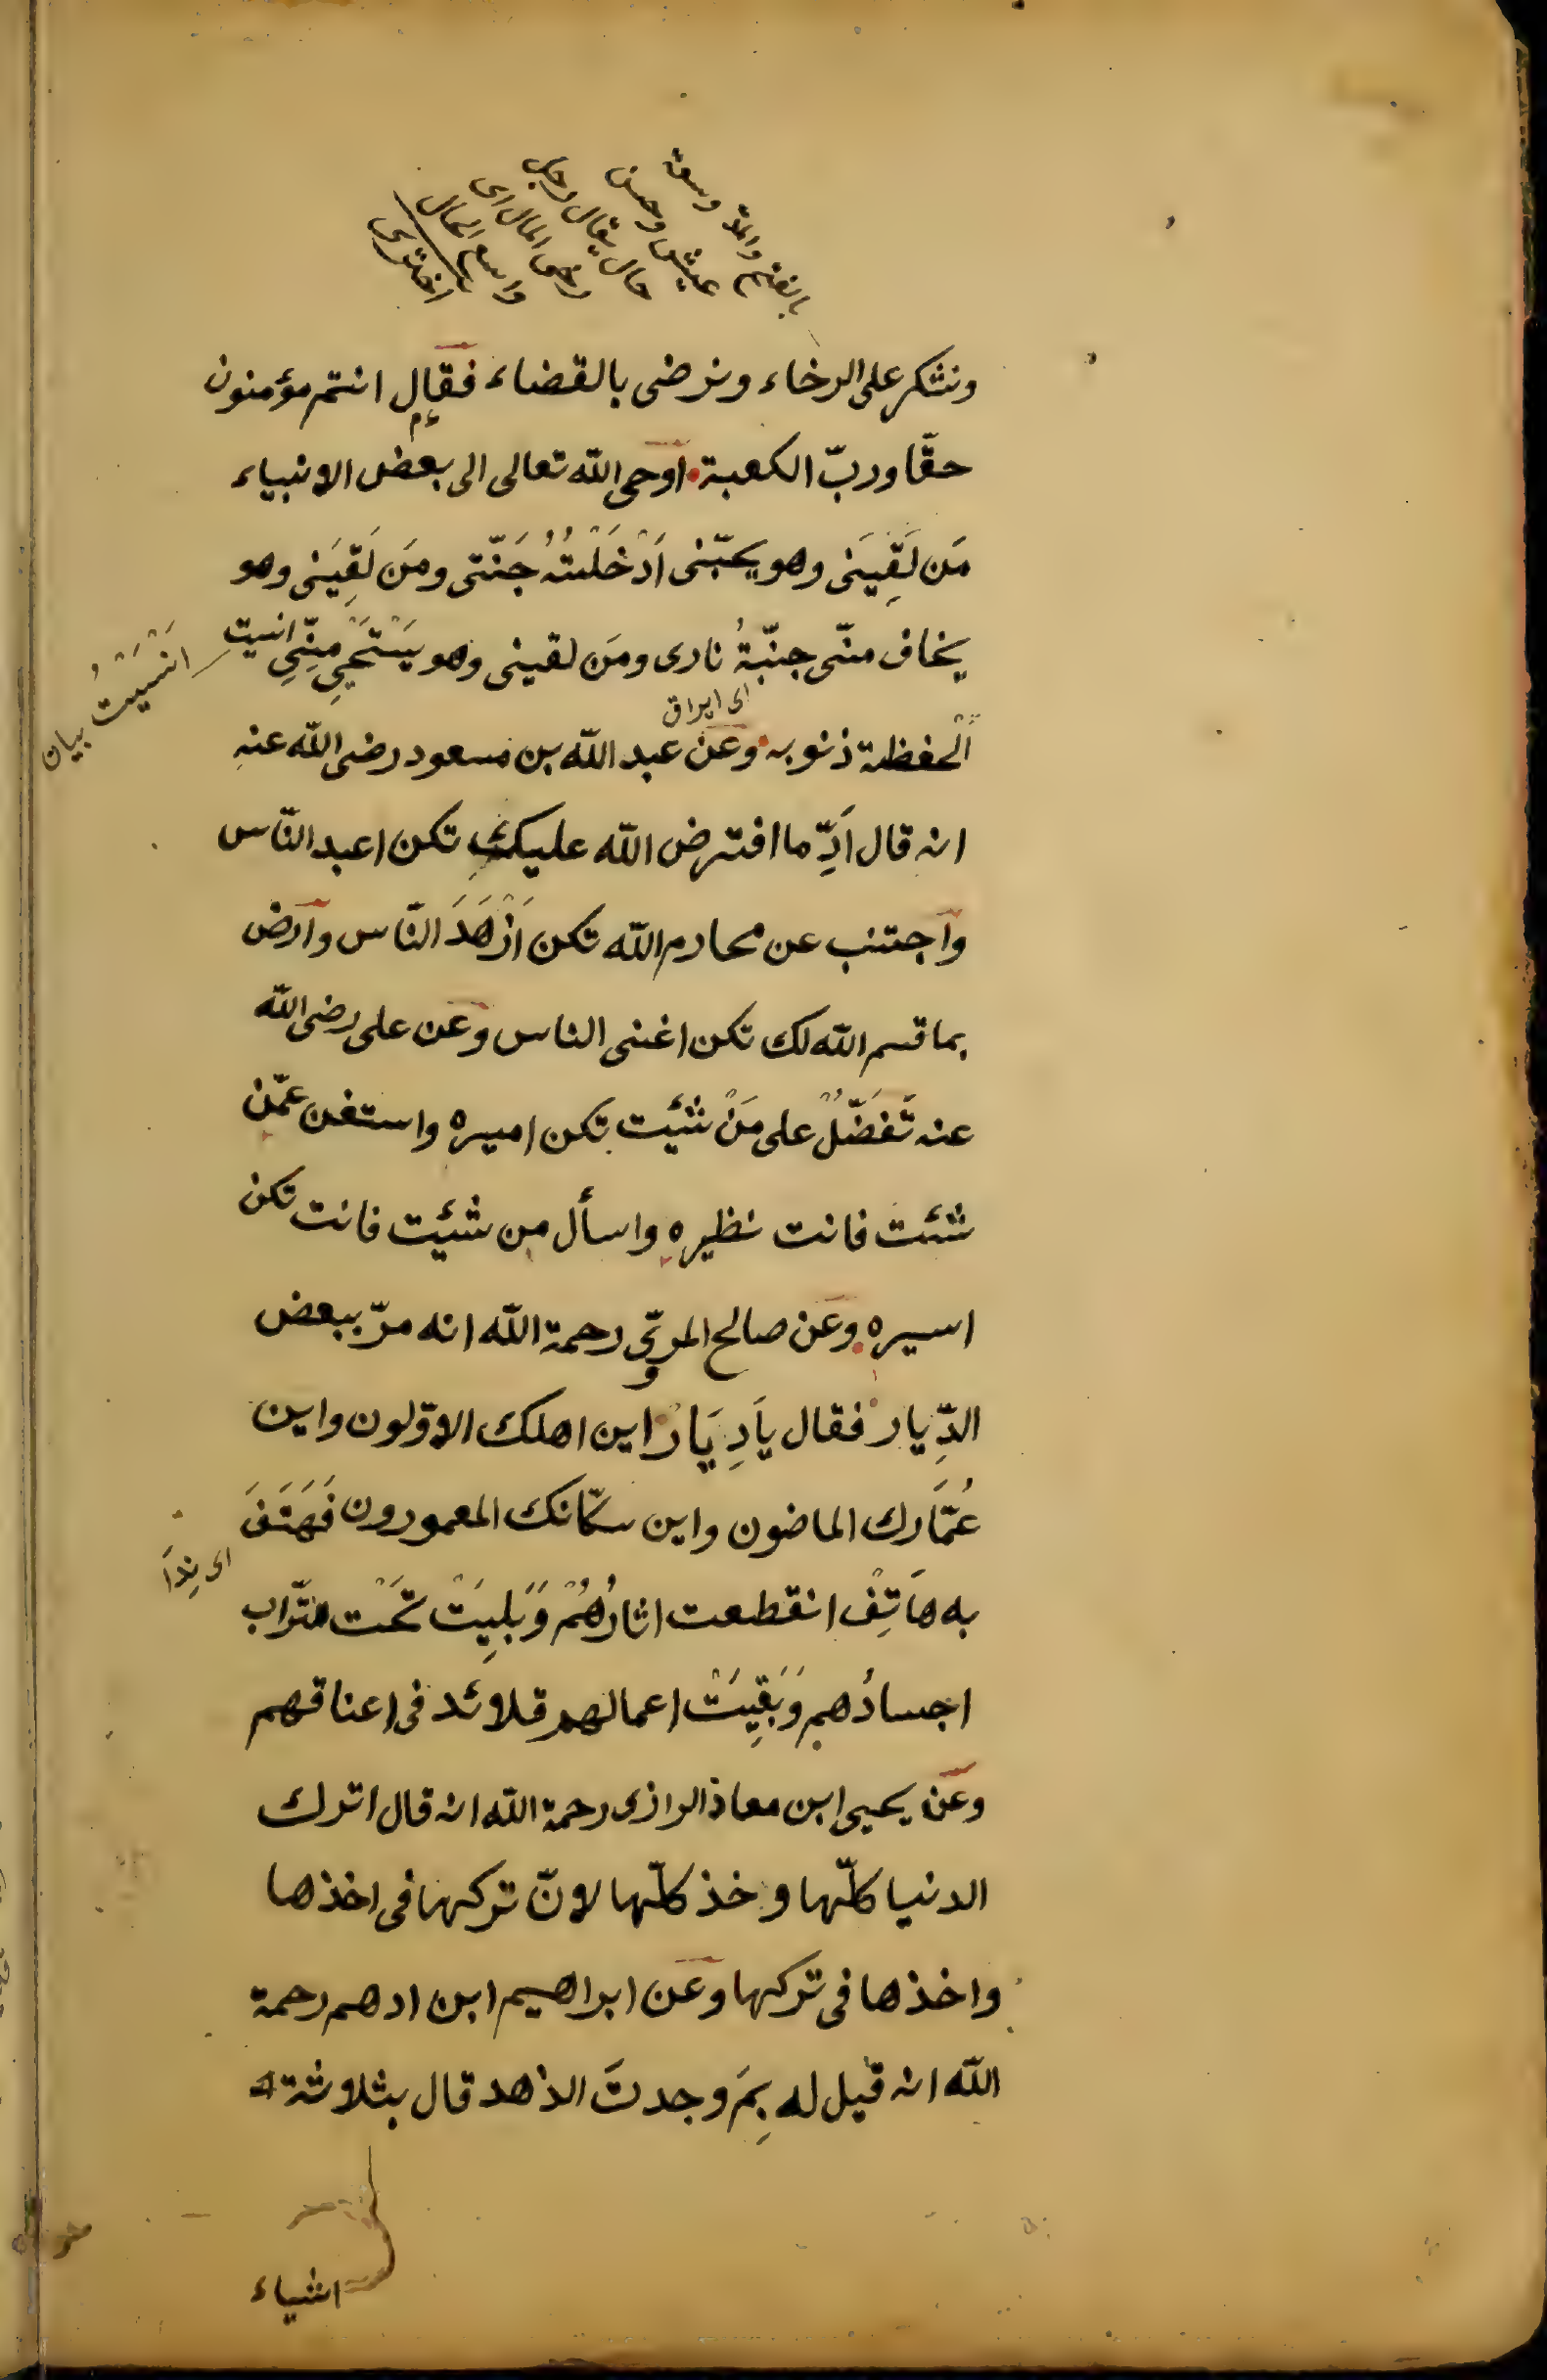 بالفتح والمد وسعة
عيش وحسن
حال يقال رجل
رخى البال اى
واسع الحال
اختری
ونشكر على الرخاء ونرضى بالقضاء فقال انتم مؤمنون
حقّا وربّ الكعبة اوحى الله تعالى الى بعض الانبياء
مَن لَقِيَنى وهو يحبّنى اَدْخَلْتُهُ جَنّتى ومَن لَقِيَنى وهو
يخاف منّى جنّبتهُ نارى ومَن لقينى وهو يَسْتَحْيِى مِنِّى انسيت
اَنْسَيْتُ بيان
الحفظة ذنوبه وعن عبد الله بن مسعود رضى الله عنهِ
انه قال اَدِّ ما افترض الله عليك تكن اعبد النّاس
واجتنب عن محارم الله تكن اَزْهَدَ النّاس وارض
بما قسم الله لك تكن اغنى الناس وعن على رضى الله
عنه تَفَضَّلْ على مَنْ شئت تكن اميره واستغن عمّن
شئت فانت نظيره واسأل من شئيت فانت تكن
اسيره وعن صالح المرقى رحمة الله انه مرّ ببعض
الدِّيار فقال ياَدِيَارْ اين اهلك الاوّلون واين
عُمَّارك الماضون واين سكّانك المعمورون فَهَتَفَ
اى نِدَا
به هَاتِفْ انقطعت اثارُهُمْ وَبَلِيَتْ تَحْت التّراب
اجسادُهم وَبَقِيَتْ اعمالهم قلائد فى اعناقهم
وعن يحيى ابن معاذ الرازى رحمة الله انه قال اترك
الدنيا كلّها وخذ كلّها لانّ تركها فى اخذها
واخذها فى تركها وعن ابراهيم ابن ادهم رحمة
الله انه قيل له بِمَ وجدتَ الذهد قال بثلاثة
اشياء